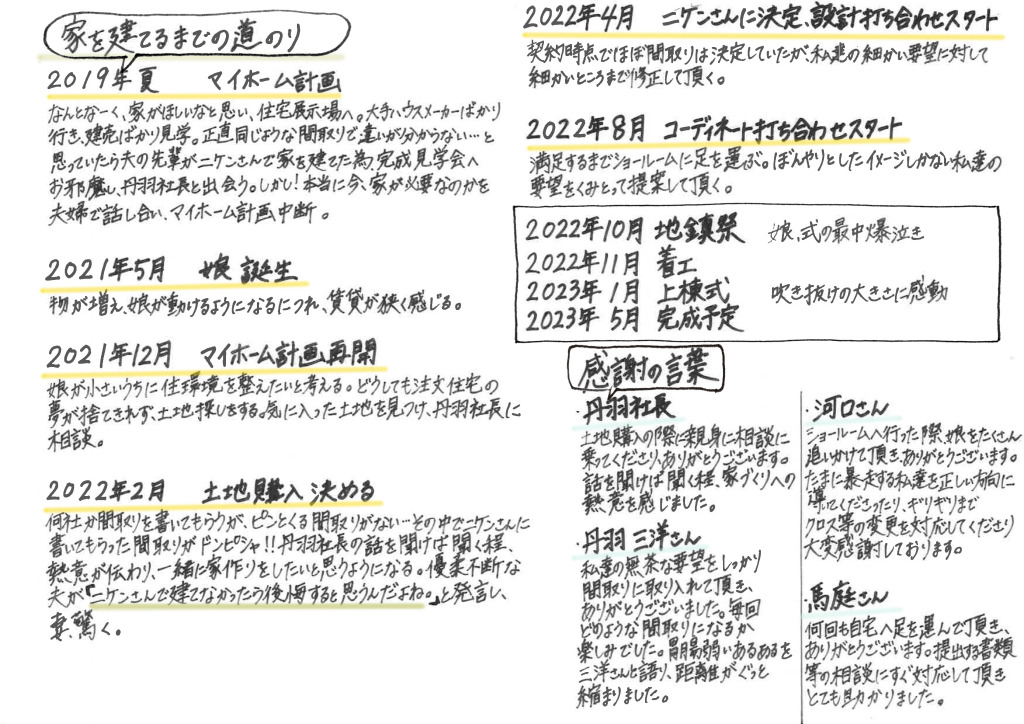 家を建てるまでの道のり
2019年夏 マイホーム計画
なんとなーく、家がほしいなと思い、住宅展示場へ。大手ハウスメーカーばかり
行き、建売ばかり見学。正直同じような間取りで違いが分からない…と
思っていたら夫の先輩がニケンさんで家を建てた為、完成見学会へ
お邪魔し、丹羽社長と出会う。しかし!本当に今、家が必要なのかを
夫婦で話し合い、マイホーム計画中断。
2021年5月 娘 誕生
物が増え、娘が動けるようになるにつれ、賃貸が狭く感じる。
2021年12月 マイホーム計画再開
娘が小さいうちに住環境を整えたいと考える。どうしても注文住宅の
夢が捨てきれず、土地探しをする。気に入った土地を見つけ、丹羽社長に
相談。
2022年2月 土地購入決める
何社か間取りを書いてもらうが、ピンとくる間取りがない…その中でニケンさんに
書いてもらった間取りがドンピシャ!!丹羽社長の話を聞けば聞く程、
熱意が伝わり、一緒に家作りをしたいと思うようになる。優柔不断な
夫が「ニケンさんで建てなかったら後悔すると思うんだよね。」と発言し、
妻、驚く。
2022年4月 ニケンさんに決定、設計打ち合わせスタート
契約時点でほぼ間取りは決定していたが、私達の細かい要望に対して
細かいところまで修正して頂く。
2022年8月 コーディネート打ち合わせスタート
満足するまでショールームに足を運ぶ。ぼんやりとしたイメージしかない私達の
要望をくみとって提案して頂く。
2022年10月 地鎮祭 娘、式の最中爆泣き
2022年11月 着工
2023年 1月 上棟式 吹き抜けの大きさに感動
2023年 5月 完成予定
感謝の言葉
・丹羽社長
土地購入の際に親身に相談に
乗ってくださり、ありがとうございます。
話を聞けば聞く程、家づくりへの
熱意を感じました。
・丹羽 三洋さん
私達の無茶な要望をしっかり
間取りに取り入れて頂き、
ありがとうございました。毎回
どのような間取りになるか
楽しみでした。胃腸弱いあるあるを
三洋さんと語り、距離がぐっと
縮まりました。
・河口さん
ショールームへ行った際、娘をたくさん
追いかけて頂き、ありがとうございます。
たまに暴走する私達を正しい方向に
導いてくださったり、ギリギリまで
クロス等の変更を対応してくださり
大変感謝しております。
・馬庭さん
何回も自宅へ足を運んで頂き、
ありがとうございます。提出する書類
等の相談にすぐ対応して頂き
とても助かりました。